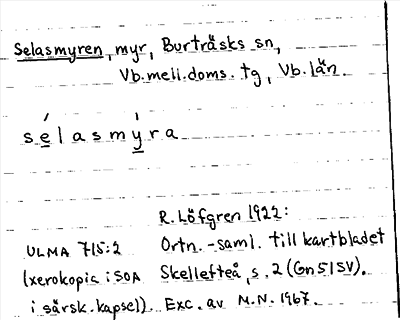 Selasmyren, myr, Burträsks sn,
Vb. mell. doms. tg, Vb. län.
sélasmýra
R. Löfgren 1922:
ULMA 715:2 Ortn.-saml. till kartbladet
(xerokopia i SOA Skellefteå, s. 2 (Gn 51 SV).
i särsk. kapsel). Exc. av M.N. 1967.